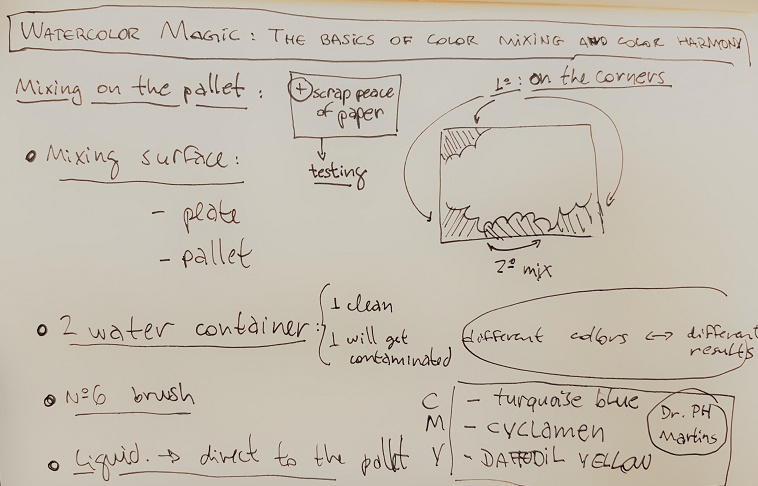 WATERCOLOR MAGIC: THE BASICS OF COLOR MIXING AND COLOR HARMONY
Mixing on the pallet:
+ scrap peace
of paper
testing
1º: on the corners
2º mix
• Mixing surface:
- plate
- pallet
• 2 water container:
1 clean
1 will get
contaminated
different colors ↔ different
results
• Nº6 brush
• Liquid. → direct to the pallet
C - turquoise blue
M - cyclamen
Y - DAFFODIL YELLOW
Dr. PH
Martins